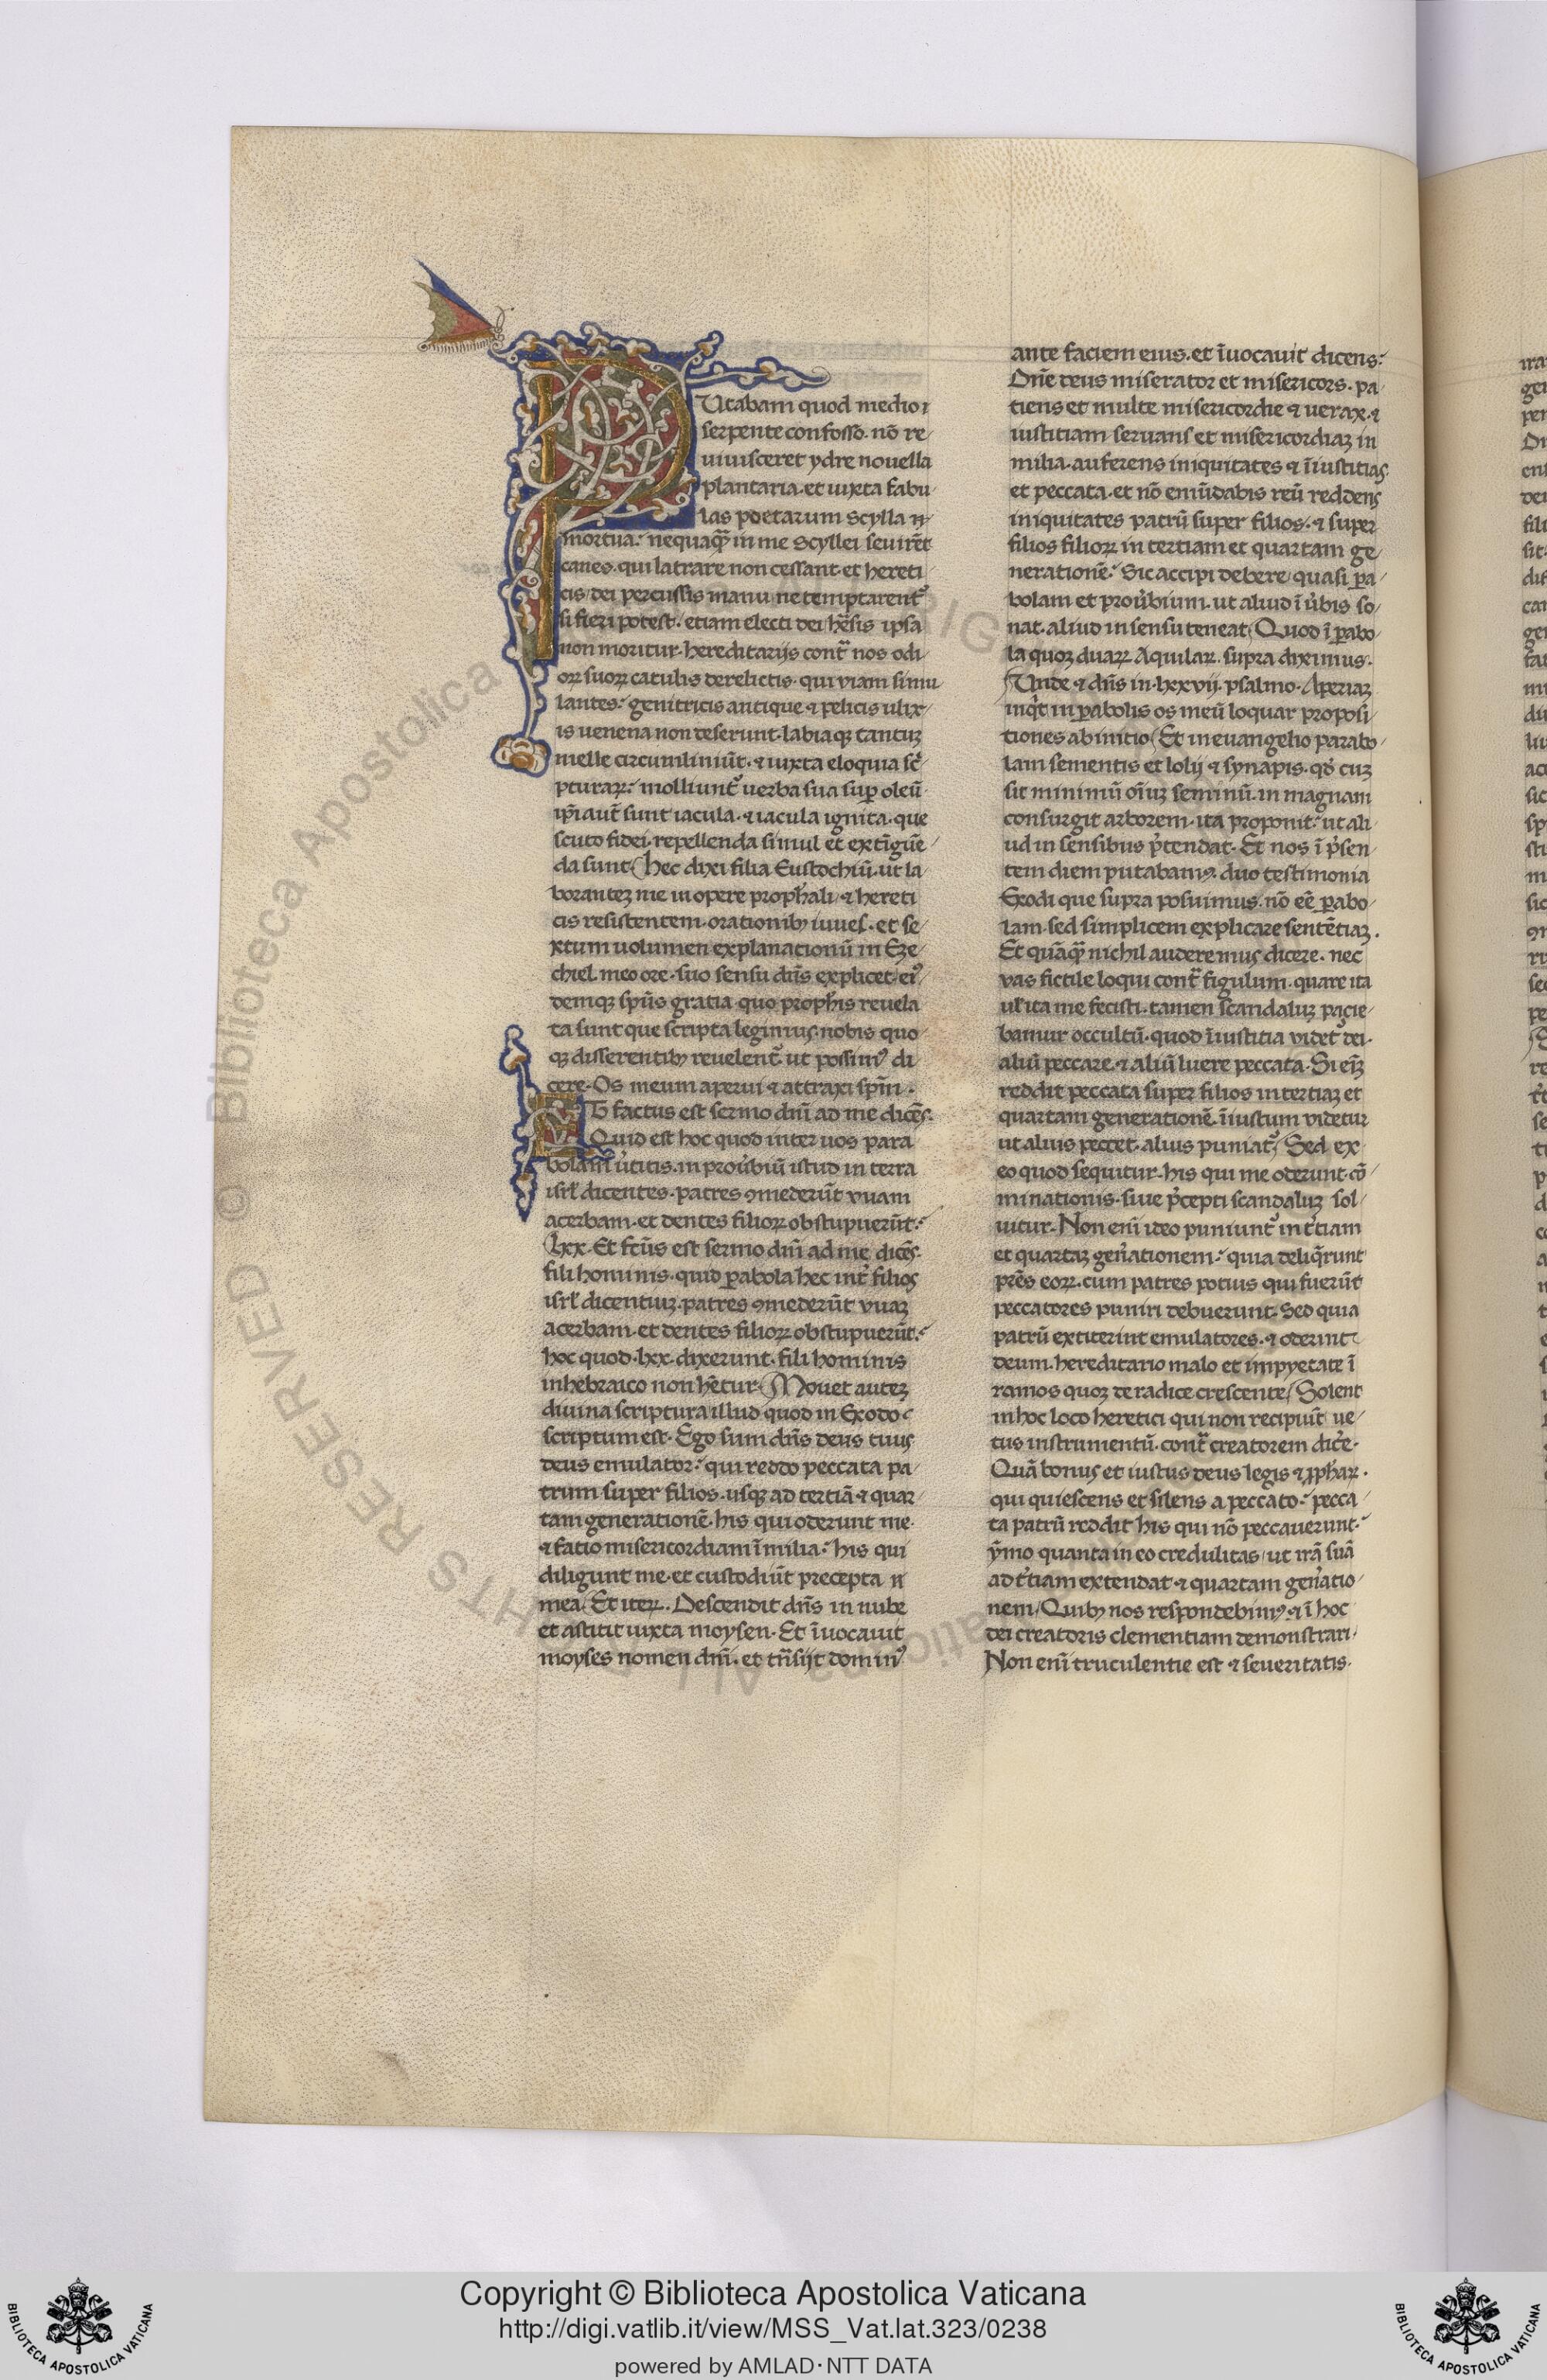 PUtabam quod medio
serpente confosso. nō re
uiuisceret ydre nouella
plantaria. et iuxta fabu
las poetarum Scylla
mortua: nequaqꝫ in me Scyllei seuirēt
canes. qui latrare non cessant. et hereti
cis dei percussis manu ne temptarentᷣ
si fieri potest. etiam electi dei hēsis ipsa
non moritur. hereditarijs contᷓ nos odi
oꝝ suoꝝ catulis derelictis. qui viam simu
lantes: genitricis antique ⁊ pelicis ulix
is uenena non deserunt. labiaqꝫ tantuꝫ
melle circumliniūt. ⁊ iuxta eloquia sc̄
pturaꝝ: molliuntᷣ uerba sua suꝑ oleū
ip̄i aut̄ sunt iacula. ⁊ iacula ignita. que
scuto fidei. repellenda simul et extīguē
da sunt. Hec dixi filia Eustochiū. ut la
boranteꝫ me in opere prophāli. ⁊ hereti
cis resistentem. orationibꝫ iuues. et se
xtum uolumen explanationū in Eze
chiel. meo ore. suo sensu dn̄s explicet. eiꝰ
demqꝫ spūs gratia. quo proph̄is reuela
ta sunt que scripta legimus. nobis quo
qꝫ disserentibꝫ reuelentᷣ. ut possimꝰ di
cere. Os meum aperui ⁊ attraxi spm̄.
ET factus est sermo dn̄i ad me dicēs.
Quid est hoc quod inter uos para
bolam ūtitis. in prouʼbiū istud in terra
isrł dicentes. patres ꝯmederūt vuam
acerbam. et dentes filioꝝ obstupuerūt:
Lxx. Et fcūs est sermo dn̄i ad me dicēs.
fili hominis. quid ꝑabola hec intʼ filios
isrł dicentiuꝫ. patres ꝯmederūt vuaꝫ
acerbam. et dentes filioꝝ obstupuerūt:
hoc quod. lxx. dixerunt. fili hominis
in hebraico non hētur. Mouet auteꝫ
diuina scriptura illud quod in Exodo
scriptum est. Ego sum dn̄s deus tuus
deus emulator: qui reddo peccata pa
trum super filios. usqꝫ ad tertiā ⁊ quar
tam generationē. his qui oderunt me.
⁊ fatio misericordiam ī milia: his qui
diligunt me. et custodiūt precepta
mea. Et iteꝝ. Descendit dn̄s in nube
et astitit iuxta moysen. Et īuocauit
moyses nomen dn̄i. et trn̄sijt dominꝰ
ante faciem eius. et īuocauit dicens:
Dn̄e deus miserator et misericors. pa
tiens et multe misericordie ⁊ uerax. ⁊
iustitiam seruans et misericordiaꝫ in
milia. auferens iniquitates ⁊ īiustitias
et peccata. et nō emūdabis reū reddens
iniquitates patrū super filios. ⁊ super
filios filioꝝ in tertiam et quartam ge
nerationē. Sic accipi debere quasi ꝑa
bolam et prouʼbium. ut aliud ī uʼbis so
nat. aliud in sensu teneat. Quod ī ꝑabo
la quoꝫ duaꝝ Aquilaꝝ. supra diximus.
Unde ⁊ dn̄s in. lxxvij. psalmo. Aperiaꝫ
inqt̄ in ꝑabolis os meū loquar proposi
tiones ab initio. Et in euangelio parabo
lam sementis et lolij ⁊ synapis. qd̄ cuꝫ
sit minimū oīuꝫ seminū. in magnam
consurgit arborem. ita proponit: ut ali
ud in sensibus pʼtendat. Et nos ī pʼsen
tem diem putabamꝰ. duo testimonia
Exodi que supra posuimus. nō eē ꝑabo
lam. sed simplicem explicare sentētiaꝫ.
Et quāqꝫ nichil auderemus dicere. nec
vas fictile loqui contᷓ figulum. quare ita
uł ita me fecisti. tamen scandaluꝫ pacie
bamur occultū. quod īiustitia videtᷣ dei.
aliū peccare. ⁊ aliū luere peccata. Si eīꝫ
reddit peccata super filios in tertiaꝫ et
quartam generationē. īiustum videtur
ut alius peccet. alius puniatᷣ. Sed ex
eo quod sequitur. his qui me oderunt. cō
minationis. siue pʼcepti scandaluꝫ sol
uitur. Non enī ideo puniuntᷣ in tʼtiam
et quartaꝫ genʼationem: quia deliqr̄unt
pr̄es eoꝝ. cum patres potius qui fuerūt
peccatores puniri debuerunt. Sed quia
patrū extiterint emulatores. ⁊ oderunt
deum. hereditario malo et impyetate ī
ramos quoꝫ de radice crescente. Solent
in hoc loco heretici qui non recipiūt ue
tus instrumentū. contᷓ creatorem dicʼe.
Quā bonus et iustus deus legis ⁊ ꝓphaꝝ.
qui quiescens et silens a peccato: pecca
ta patrū reddit his qui nō peccauerunt.
ȳmo quanta in eo credulitas ut irā suā
ad tʼtiam extendat ⁊ quartam genʼatio
nem. Quibꝫ nos respondebimꝰ. ⁊ ī hoc
dei creatoris clementiam demonstrari.
Non enī truculentie est ⁊ seueritatis.
Copyright © Biblioteca Apostolica Vaticana
http://digi.vatlib.it/view/MSS_Vat.lat.323/0238
powered by AMLAD·NTT DATA
BIBLIOTECA APOSTOLICA VATICANA
BIBLIOTECA APOSTOLICA VATICANA